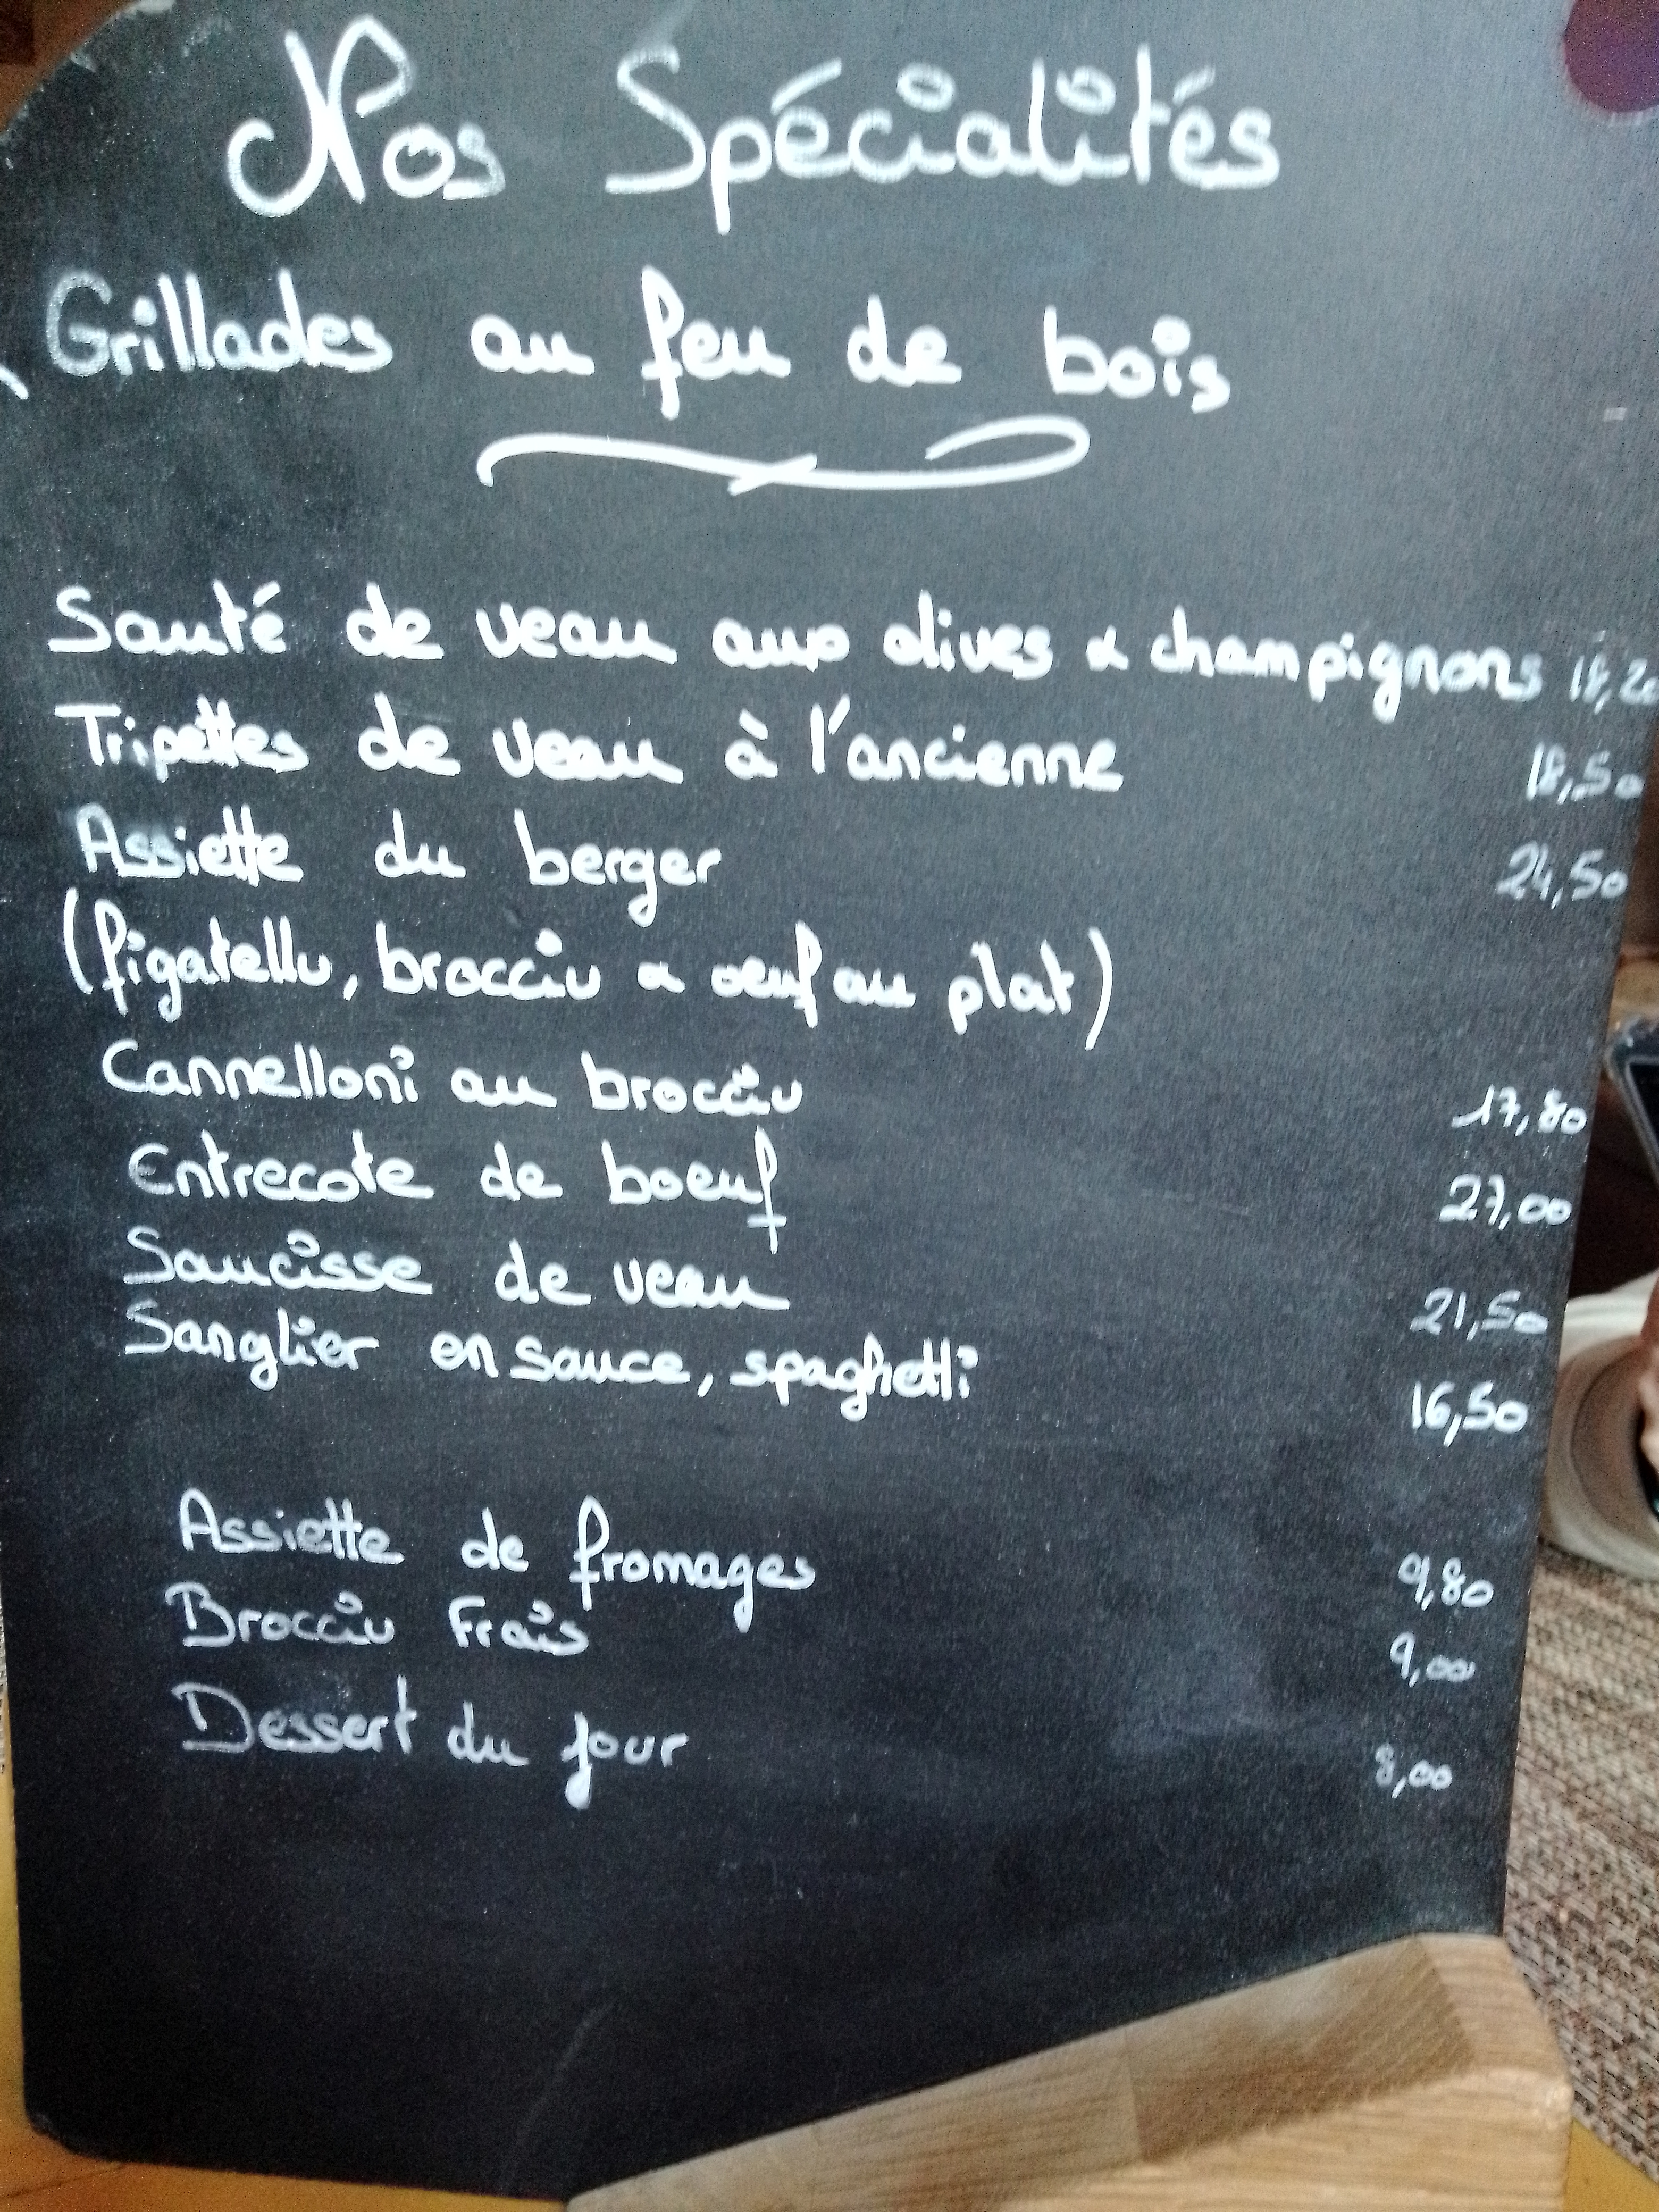 Nos Spécialités
Grillades au feu de bois
Sauté de veau aux olives & champignons 18,20
Tripettes de veau à l'ancienne 18,50
Assiette du berger 24,50
(figatellu, brocciu & oeuf au plat)
Cannelloni au brocciu 17,80
Entrecote de boeuf 27,00
Saucisse de veau 21,50
Sanglier en sauce, spaghetti 16,50
Assiette de fromages 9,80
Brocciu Frais 9,00
Dessert du jour 8,00